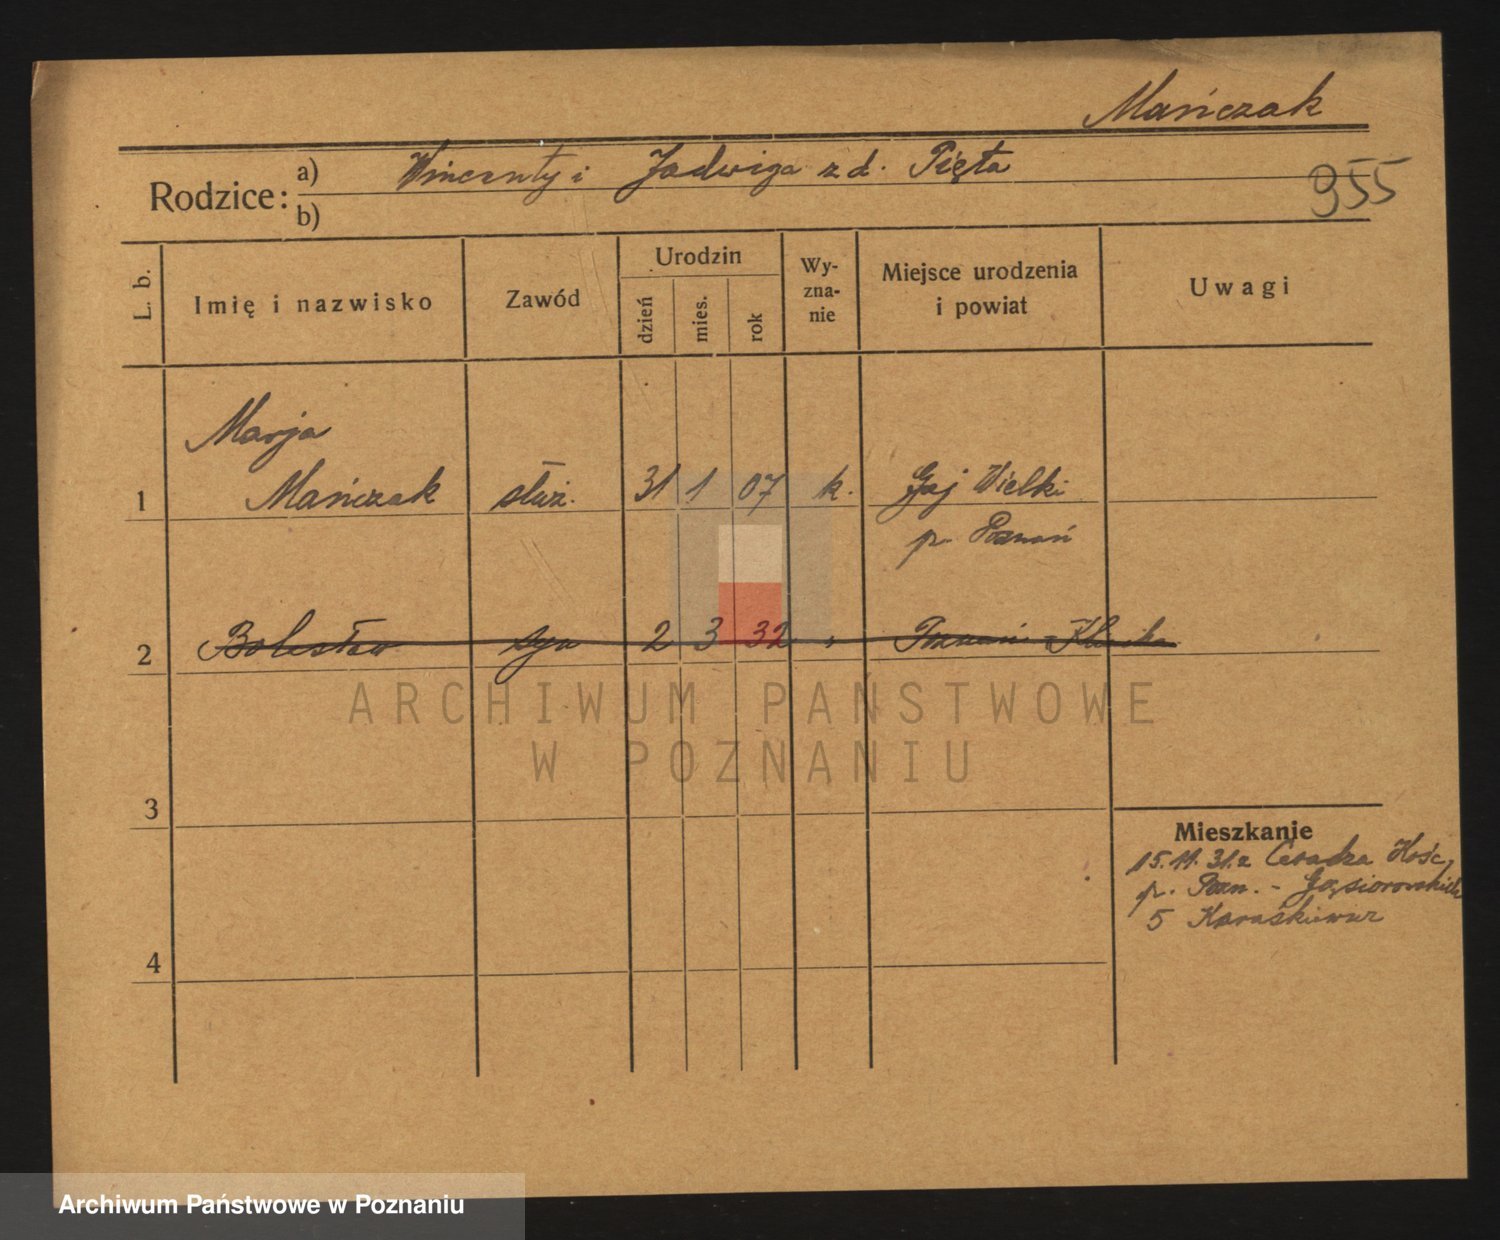 Mańczak
Rodzice: a) Wincenty i Jadwiga z d. Pięta
b)
955
L. b.
Imię i nazwisko
Zawód
Urodzin
dzień
mies.
rok
Wy-
zna-
nie
Miejsce urodzenia
i powiat
Uwagi
Marja
1 Mańczak służ. 31 1 07 k. Gaj Wielki
p. Poznań
2 Bolesław syn 2 3 32 " Poznań Klinika
ARCHIWUM PAŃSTWOWE
W POZNANIU
3
Mieszkanie
15.11.31. z Ceradza Kość.
p. Pozn. - Gąsiorowskich
5
4
Archiwum Państwowe w Poznaniu